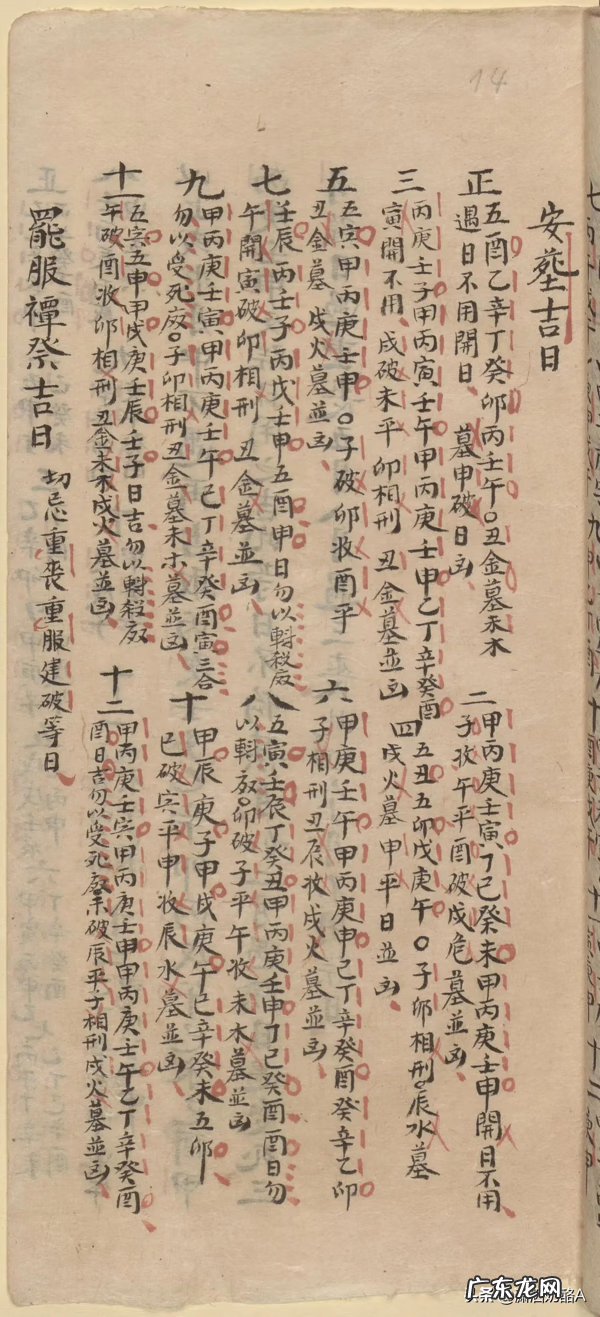 14
安葬吉日
正五酉乙辛丁癸卯丙壬午〇丑金墓未木
遇日不用開日、墓申破日凶、
二甲丙庚壬寅丁巳癸未甲丙庚壬申開日不用
子收午平酉破戌危墓並凶、
三丙庚壬子甲丙寅壬午甲丙庚壬申乙丁辛癸酉
寅開不用、戌破未平卯相刑丑金墓並凶
四五丑五卯戊庚午〇子卯相刑辰水墓
戌火墓申平日並凶、
五五寅甲丙庚壬申〇子破卯收酉平
丑金墓戌火墓並凶、
六甲庚壬午甲丙庚申己丁辛癸酉癸辛乙卯
子相刑丑辰收戌火墓並凶、
七壬辰丙壬子丙戊壬申五酉甲日勿以
午開寅破卯相刑丑金墓並凶、
八五寅壬辰丁癸丑甲丙庚壬申丁己癸酉酉日勿
卯破子平午收未木墓並凶
九甲丙庚壬寅甲丙庚壬午己丁辛癸酉寅三合
勿以受死廢〇子卯相刑丑金墓未木墓並凶、
十甲辰庚子甲戌庚午己辛癸未五卯
巳破亥平申收辰水墓並凶、
十一五寅五申甲戌庚壬辰壬子日吉勿以
午破酉收卯相刑丑金未木戌火墓並凶、
十二甲丙庚壬寅甲丙庚壬申甲丙庚壬午乙丁辛癸酉
酉日吉勿以受死廢未破辰平子相刑戌火墓並凶、
罷服禫祭吉日 切忌重喪重服建破等日、
广东龙网